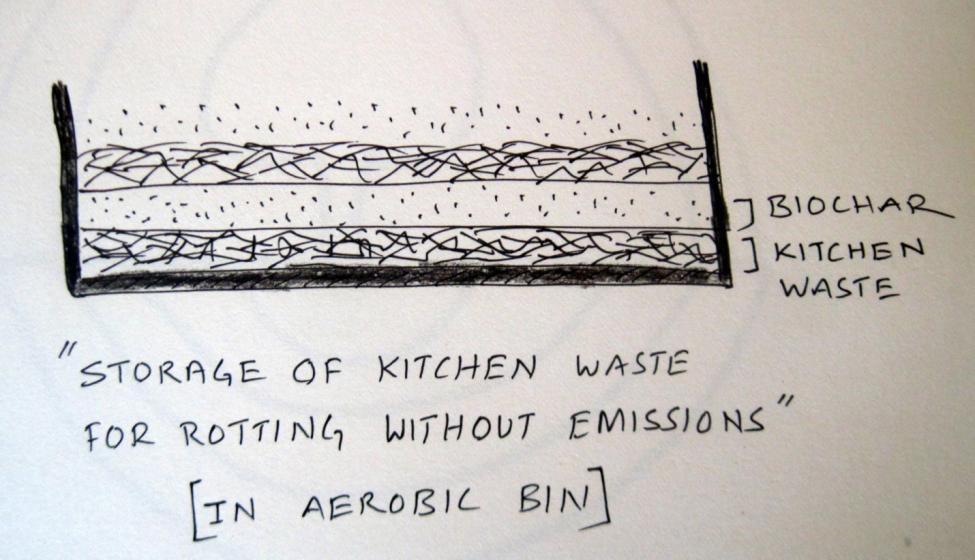 BIOCHAR
KITCHEN
WASTE
"STORAGE OF KITCHEN WASTE
FOR ROTTING WITHOUT EMISSIONS"
[IN AEROBIC BIN]